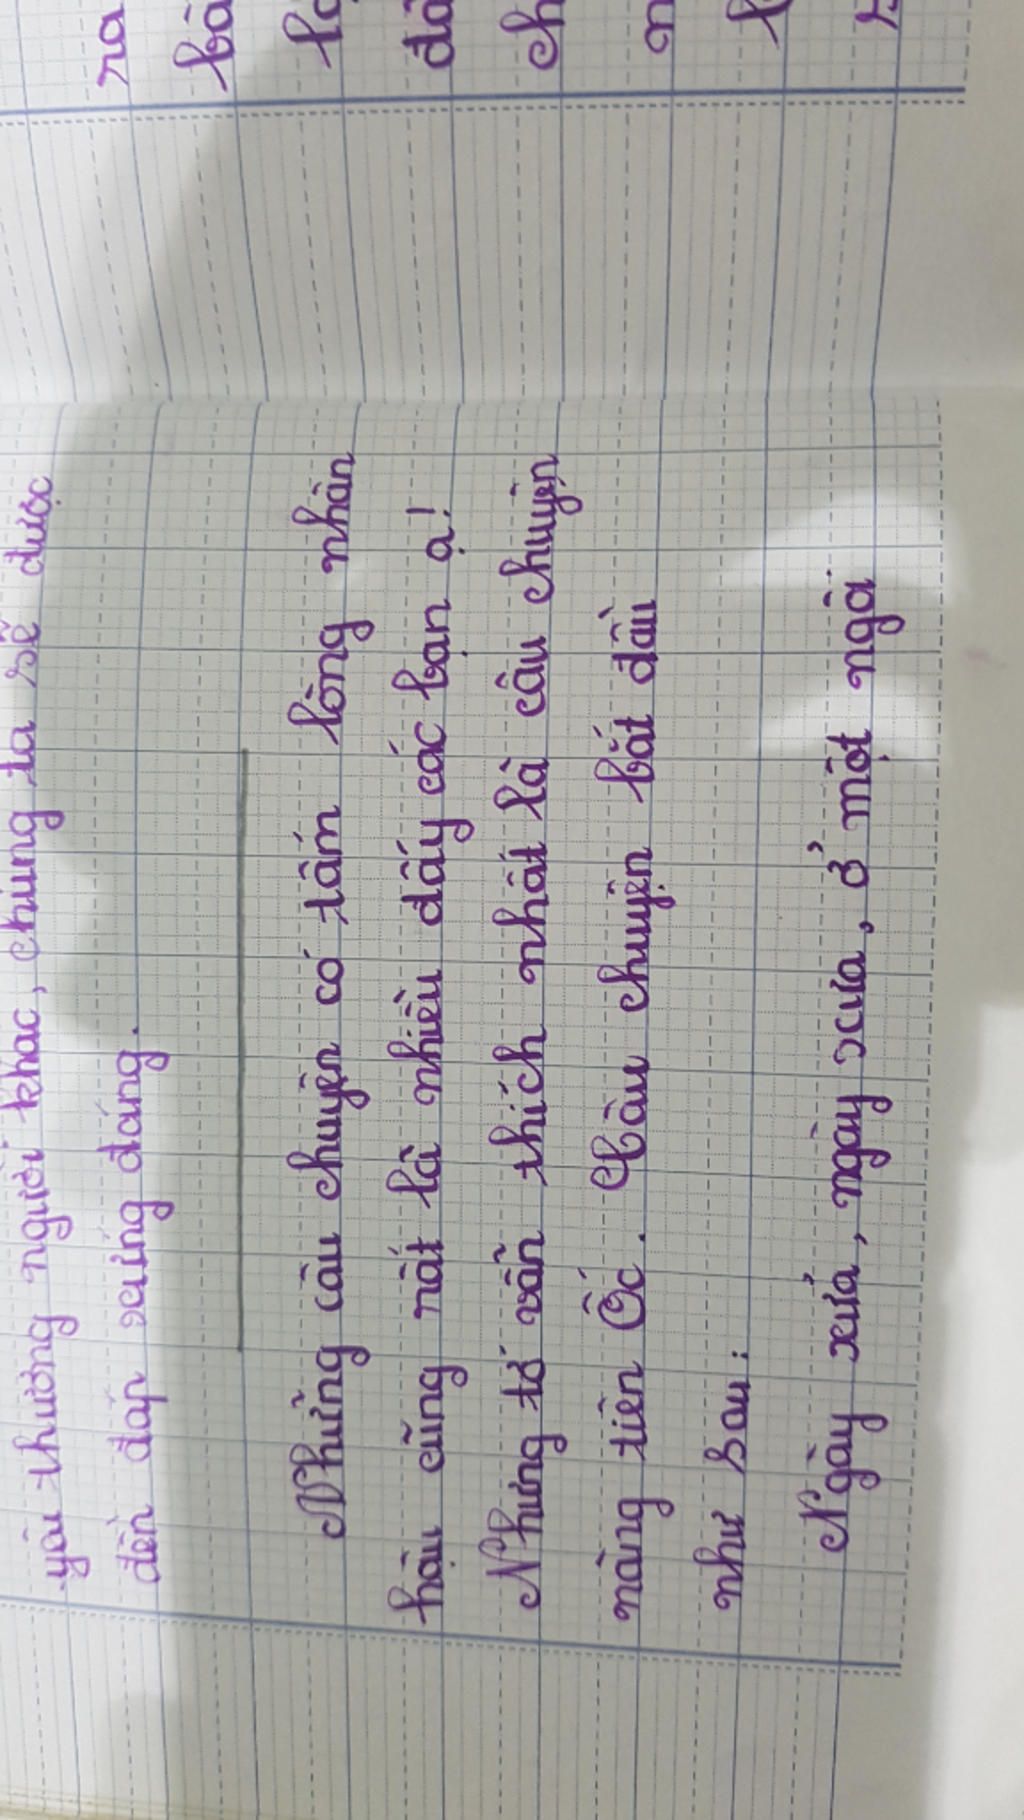 yêu thương người khác, chúng ta sẽ được
đền đáp xứng đáng.
Những câu chuyện có tấm lòng nhân
hậu cũng rất là nhiều đấy các bạn ạ!
Nhưng tớ vẫn thích nhất là câu chuyện
nàng tiên Ốc. Câu chuyện bắt đầu
như sau:
Ngày xửa, ngày xưa, ở một ngôi
ra